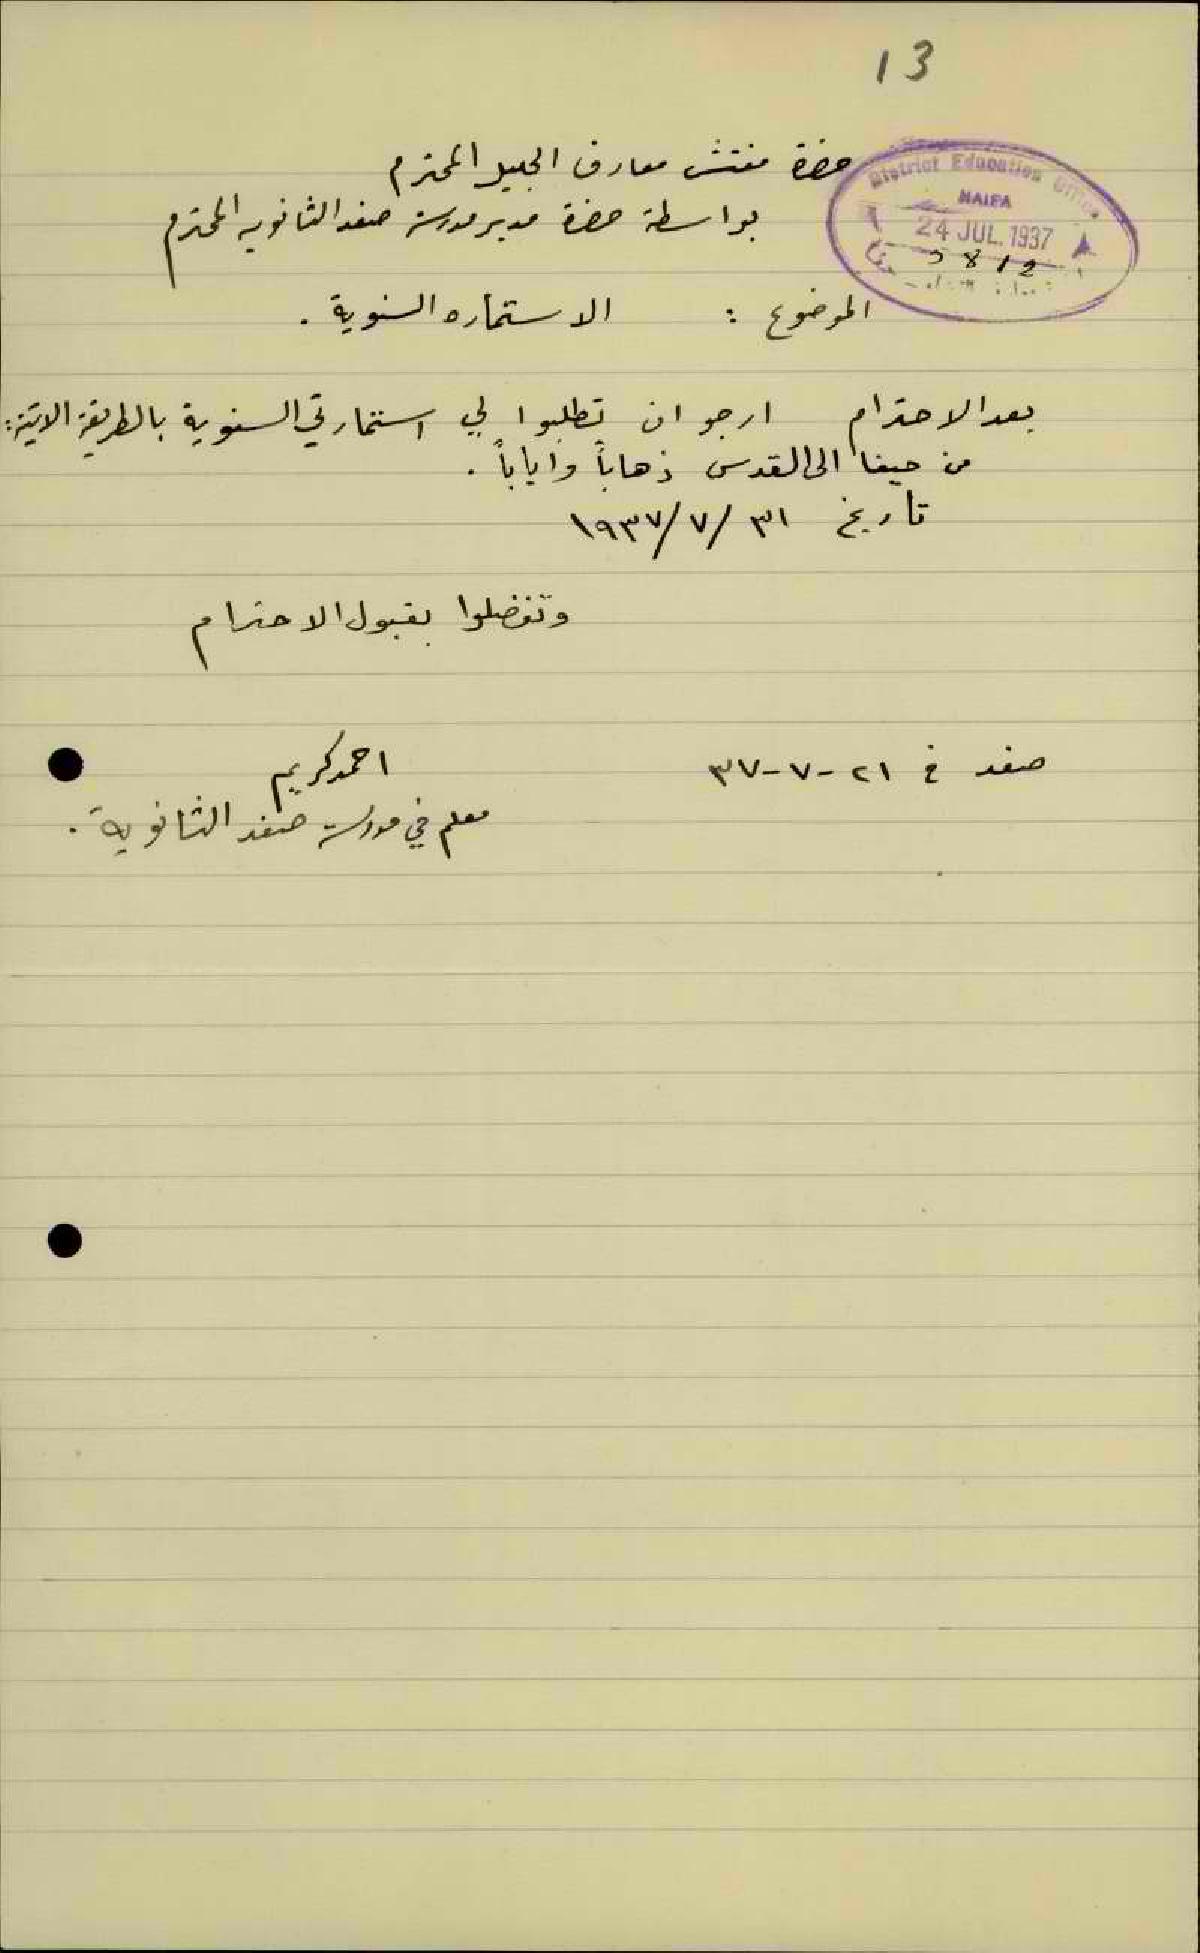 13
District Education Office
HAIFA
24 JUL. 1937
حضرة مفتش معارف الجليل المحترم
بواسطة حضرة مدير مدرسة صفد الثانويه المحترم
الموضوع : الاستماره السنوية .
بعد الاحترام ارجو ان تطلبوا لي استمارتي السنوية بالطريقة الاتية:
من حيفا الى القدس ذهاباً واياباً .
تاريخ ٣١ /٧/ ١٩٣٧
وتفضلوا بقبول الاحترام
صفد في ٢١-٧-٣٧
احمد كريم
معلم في مدرسة صفد الثانوية .